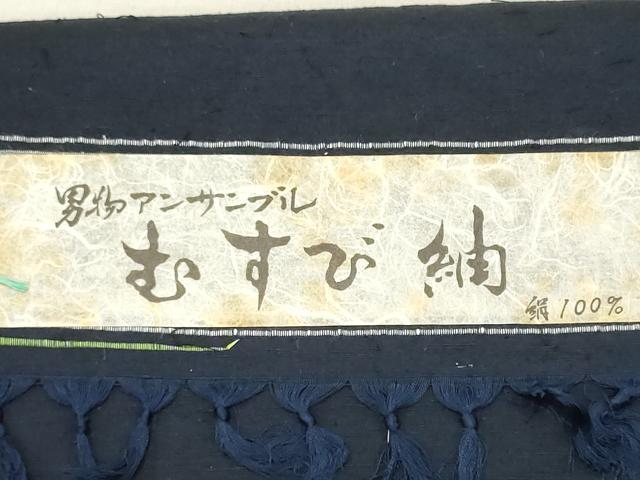 男物アンサンブル
むすび紬
絹100%